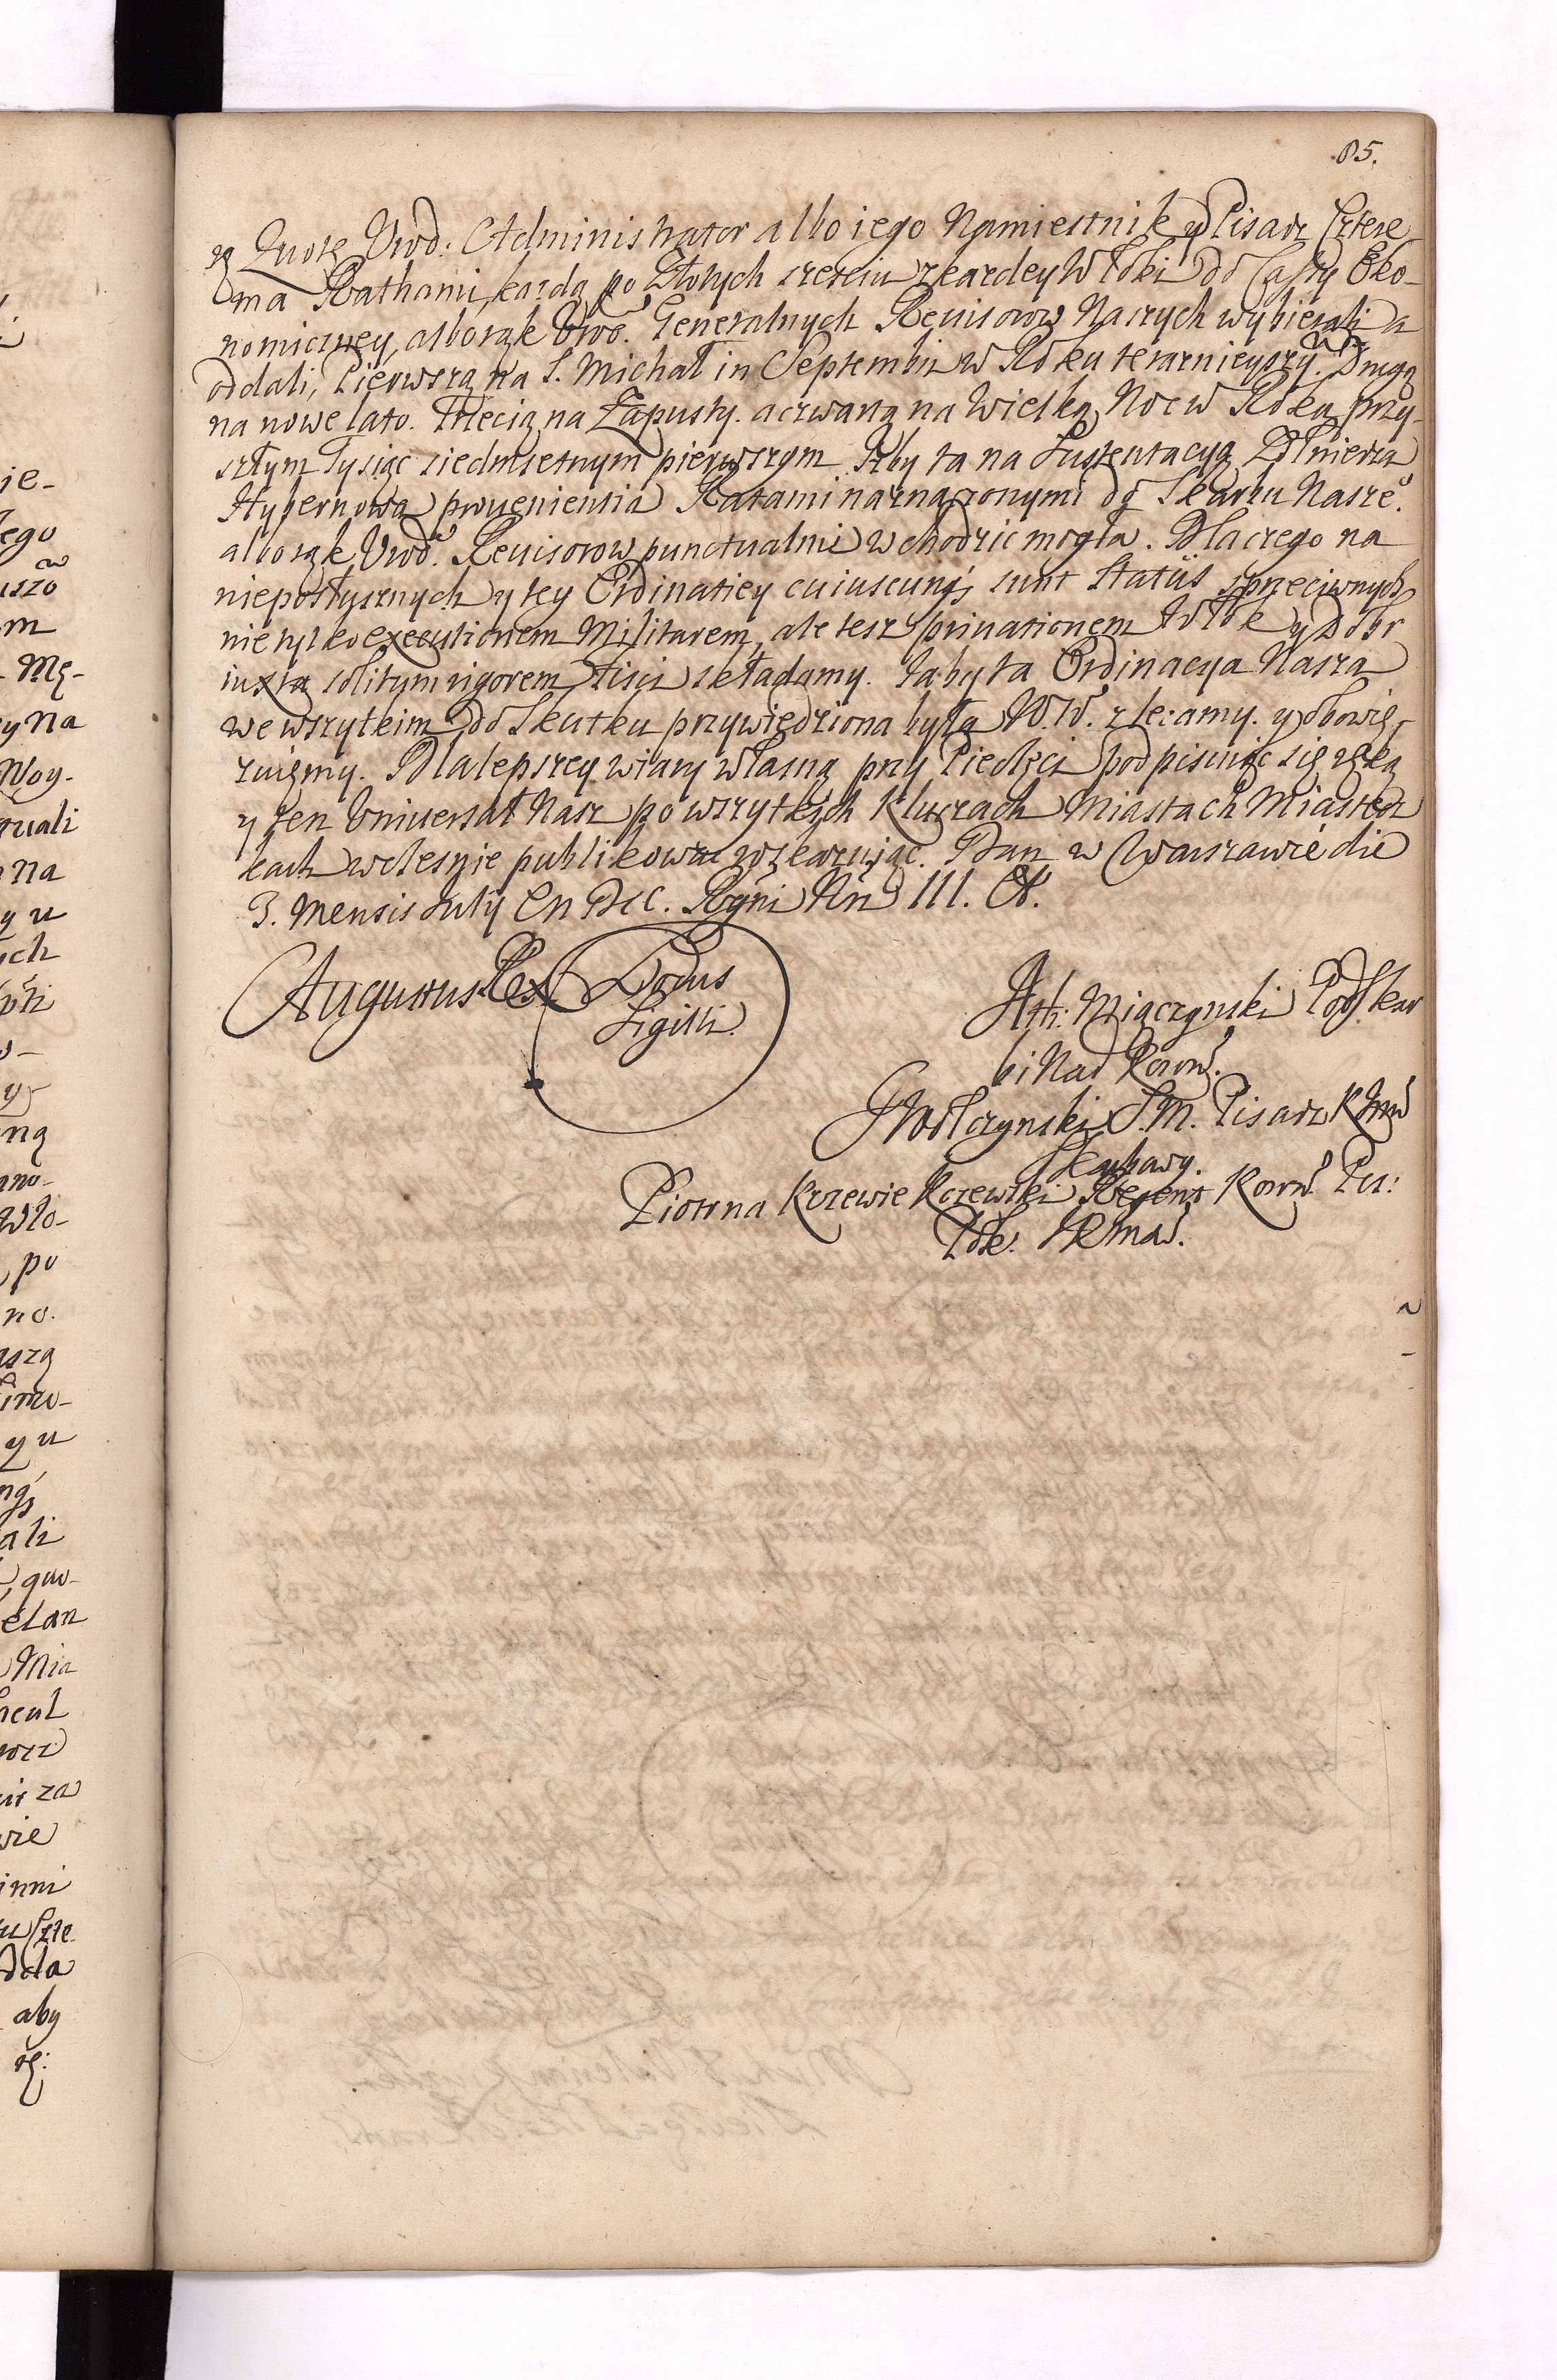 85.
ą Quotę Urod: Administrator albo iego Namiestnik y Pisarz Cztere-
ma Rathami, każdą po Złotych sześciu z kazdey Włoki do Cassy Eko-
nomiczney, albo rąk Urod. Generalnych Reuisorow Naszych wybierali a
oddali, Pierwszą na S. Michał in Septembri w Roku teraznieyszy. Drugą
na nowe lato. Trzecią na Zapusty. a czwartą na Wielką Noc w Roku przy-
szłym Tysiąc siedmsetnym pierwszym. Zby ta na Sustentacyą Zołnierza
Hybernowa prouenientia Ratami naznaczonymi do Skarbu Nasze.
albo rąk Urod. Reuisorow punctualnie wchodzic mogła. Dlaczego na
nieposłusznych y tey Ordinatiey cuiuscunq; sunt Status sprzeciwnych
nie tylko executionem Militarem, ale tesz priuationem Włok y Dobr
iuxta solitum rigorem Fisci składamy. Iżby ta Ordinacya Nasza
we wszytkim do Skutku przywiedziona była W.W. zlecamy. y obowię-
zuięmy. Dla lepszey wiary własną przy Pieczęci podpisuiąc się ręką
y ten Uniwersał Nasz po wszytkich Kluczach Miastach Miastecz
kach wczesnie publikowac rozkazuiąc. Dan w Warszawie die
3. Mensis July An Dcc. Regni Nri III. A.
Augustus Rex
Locus
Sigilli.
Ath: Miączynski Podskar
bi Nad Koron.
G Wolczynski S.M. Pisarz
Skarbowy.
Piotr na Krzewie Krzewski Regent Koron.